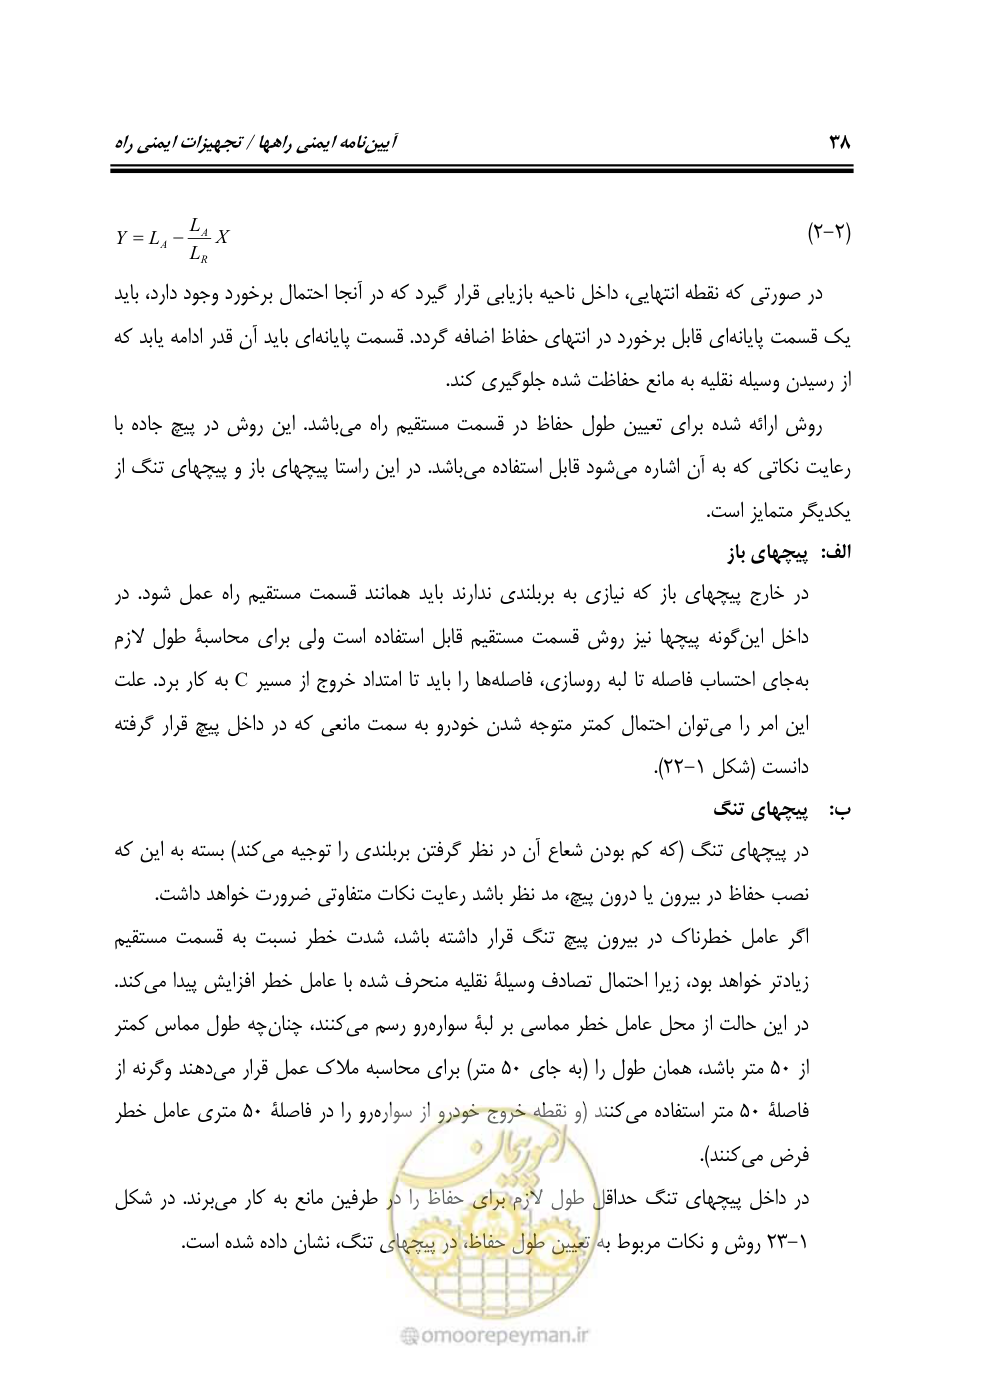 ۳۸ آیین‌نامه ایمنی راهها / تجهیزات ایمنی راه
(۲-۲) Y = L_A − (L_A / L_R) X
در صورتی که نقطه انتهایی، داخل ناحیه بازیابی قرار گیرد که در آنجا احتمال برخورد وجود دارد، باید
یک قسمت پایانه‌ای قابل برخورد در انتهای حفاظ اضافه گردد. قسمت پایانه‌ای باید آن قدر ادامه یابد که
از رسیدن وسیله نقلیه به مانع حفاظت شده جلوگیری کند.
روش ارائه شده برای تعیین طول حفاظ در قسمت مستقیم راه می‌باشد. این روش در پیچ جاده با
رعایت نکاتی که به آن اشاره می‌شود قابل استفاده می‌باشد. در این راستا پیچهای باز و پیچهای تنگ از
یکدیگر متمایز است.
الف: پیچهای باز
در خارج پیچهای باز که نیازی به بربلندی ندارند باید همانند قسمت مستقیم راه عمل شود. در
داخل این‌گونه پیچها نیز روش قسمت مستقیم قابل استفاده است ولی برای محاسبهٔ طول لازم
به‌جای احتساب فاصله تا لبه روسازی، فاصله‌ها را باید تا امتداد خروج از مسیر C به کار برد. علت
این امر را می‌توان احتمال کمتر متوجه شدن خودرو به سمت مانعی که در داخل پیچ قرار گرفته
دانست (شکل ۱-۲۲).
ب: پیچهای تنگ
در پیچهای تنگ (که کم بودن شعاع آن در نظر گرفتن بربلندی را توجیه می‌کند) بسته به این که
نصب حفاظ در بیرون یا درون پیچ، مد نظر باشد رعایت نکات متفاوتی ضرورت خواهد داشت.
اگر عامل خطرناک در بیرون پیچ تنگ قرار داشته باشد، شدت خطر نسبت به قسمت مستقیم
زیادتر خواهد بود، زیرا احتمال تصادف وسیلهٔ نقلیه منحرف شده با عامل خطر افزایش پیدا می‌کند.
در این حالت از محل عامل خطر مماسی بر لبهٔ سواره‌رو رسم می‌کنند، چنان‌چه طول مماس کمتر
از ۵۰ متر باشد، همان طول را (به جای ۵۰ متر) برای محاسبه ملاک عمل قرار می‌دهند وگرنه از
فاصلهٔ ۵۰ متر استفاده می‌کنند (و نقطه خروج خودرو از سواره‌رو را در فاصلهٔ ۵۰ متری عامل خطر
فرض می‌کنند).
در داخل پیچهای تنگ حداقل طول لازم برای حفاظ را در طرفین مانع به کار می‌برند. در شکل
۱-۲۳ روش و نکات مربوط به تعیین طول حفاظ، در پیچهای تنگ، نشان داده شده است.
امور پیمان
@omoorepeyman.ir